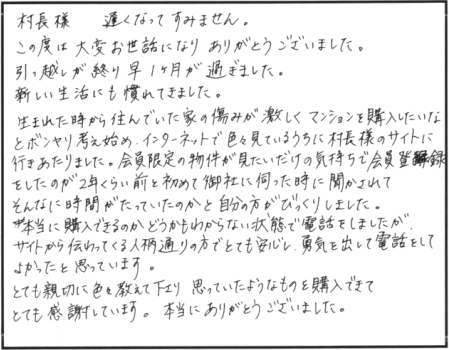 村長様　遅くなってすみません。
この度は大変お世話になり ありがとうございました。
引っ越しが終り早1ヶ月が過ぎました。
新しい生活にも慣れてきました。
生まれた時から住んでいた家の傷みが激しく マンションを購入したいな
とボンヤリ考え始め、インターネットで色々見ているうちに村長様のサイトに
行きあたりました。会員限定の物件が見たいだけの気持ちで会員登録
をしたのが2年くらい前と初めて御社に伺った時に聞かされて
そんなに時間がたっていたのかと自分の方がびっくりしました。
本当に購入できるのかどうかもわからない状態で電話をしましたが、
サイトから伝わってくる人柄通りの方でとても安心し 勇気を出して電話をして
よかったと思っています。
とても親切に色々教えて下さり 思っていたようなものを購入できて
とても感謝しています。本当にありがとうございました。